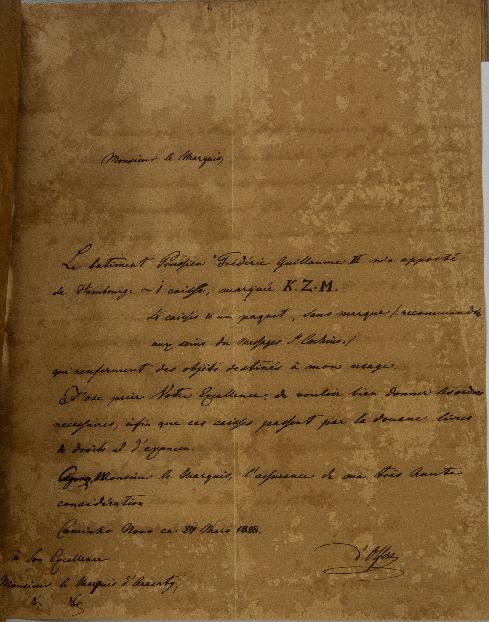 Monsieur le Marquis,
Le batiment Prussien "Frédéric Guillaume III m'a apporté
de Hambourg. – 1 caisse, marquée K.Z.M.
caisses & un paquet, sans marque /:recommandés
aux soins du :/
qui renferment des objets destinés à mon usage.
J'ose prier Votre Excellence, de vouloir bien donner les ordres
nécessaires, afin que ces caisses passent par la douane livres
de droits et d'expences.
Monsieur le Marquis, l'assurance de ma très haute
considération
Caminho Novo ce Mars 1828.
à Son Excellence
Monsieur le Marquis d'Aracaty,
d'Olfers